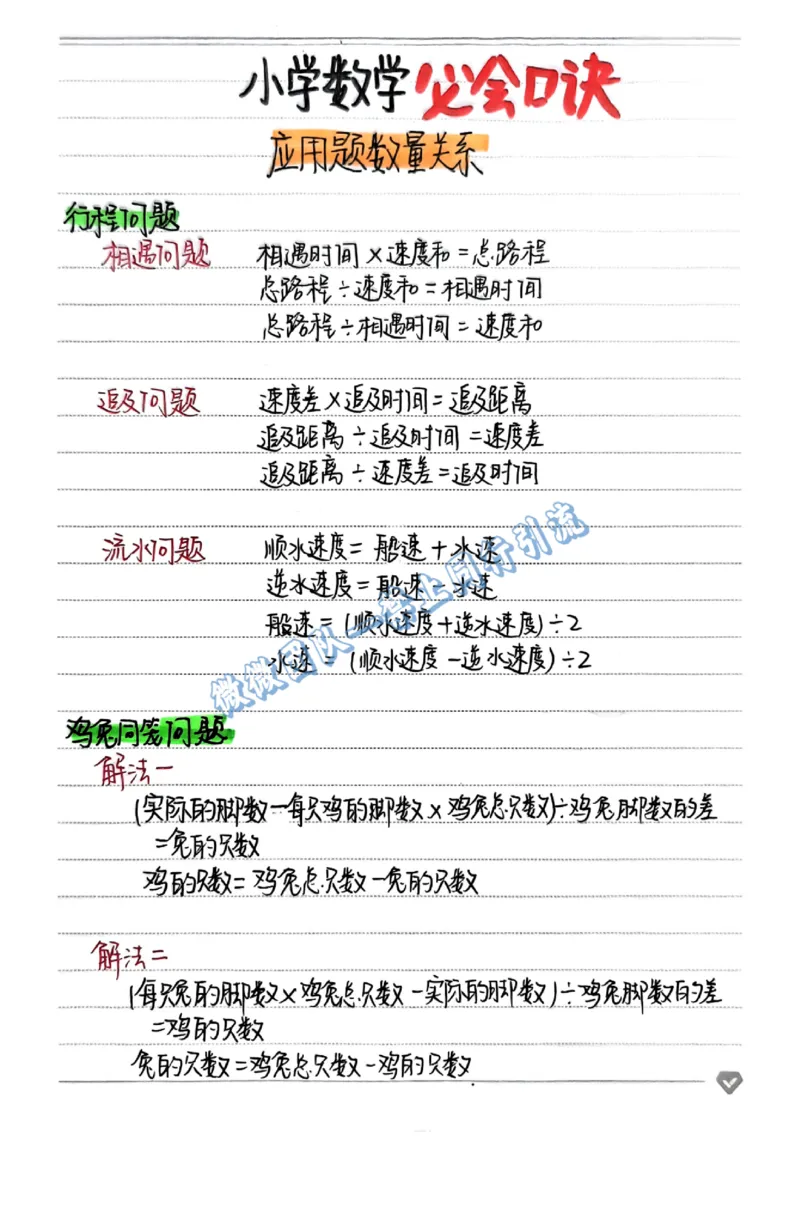 小学数学必会口诀
应用题数量关系
行程问题
相遇问题 相遇时间×速度和=总路程
总路程÷速度和=相遇时间
总路程÷相遇时间=速度和
追及问题 速度差×追及时间=追及距离
追及距离÷追及时间=速度差
追及距离÷速度差=追及时间
流水问题 顺水速度=船速+水速
逆水速度=船速-水速
船速=(顺水速度+逆水速度)÷2
水速=(顺水速度-逆水速度)÷2
微微团队一卷上同行引流
鸡兔同笼问题
解法一
(实际的脚数-每只鸡的脚数×鸡兔总只数)÷鸡兔脚数的差
=兔的只数
鸡的只数=鸡兔总只数-兔的只数
解法二
(每只兔的脚数×鸡兔总只数-实际的脚数)÷鸡兔脚数的差
=鸡的只数
兔的只数=鸡兔总只数-鸡的只数